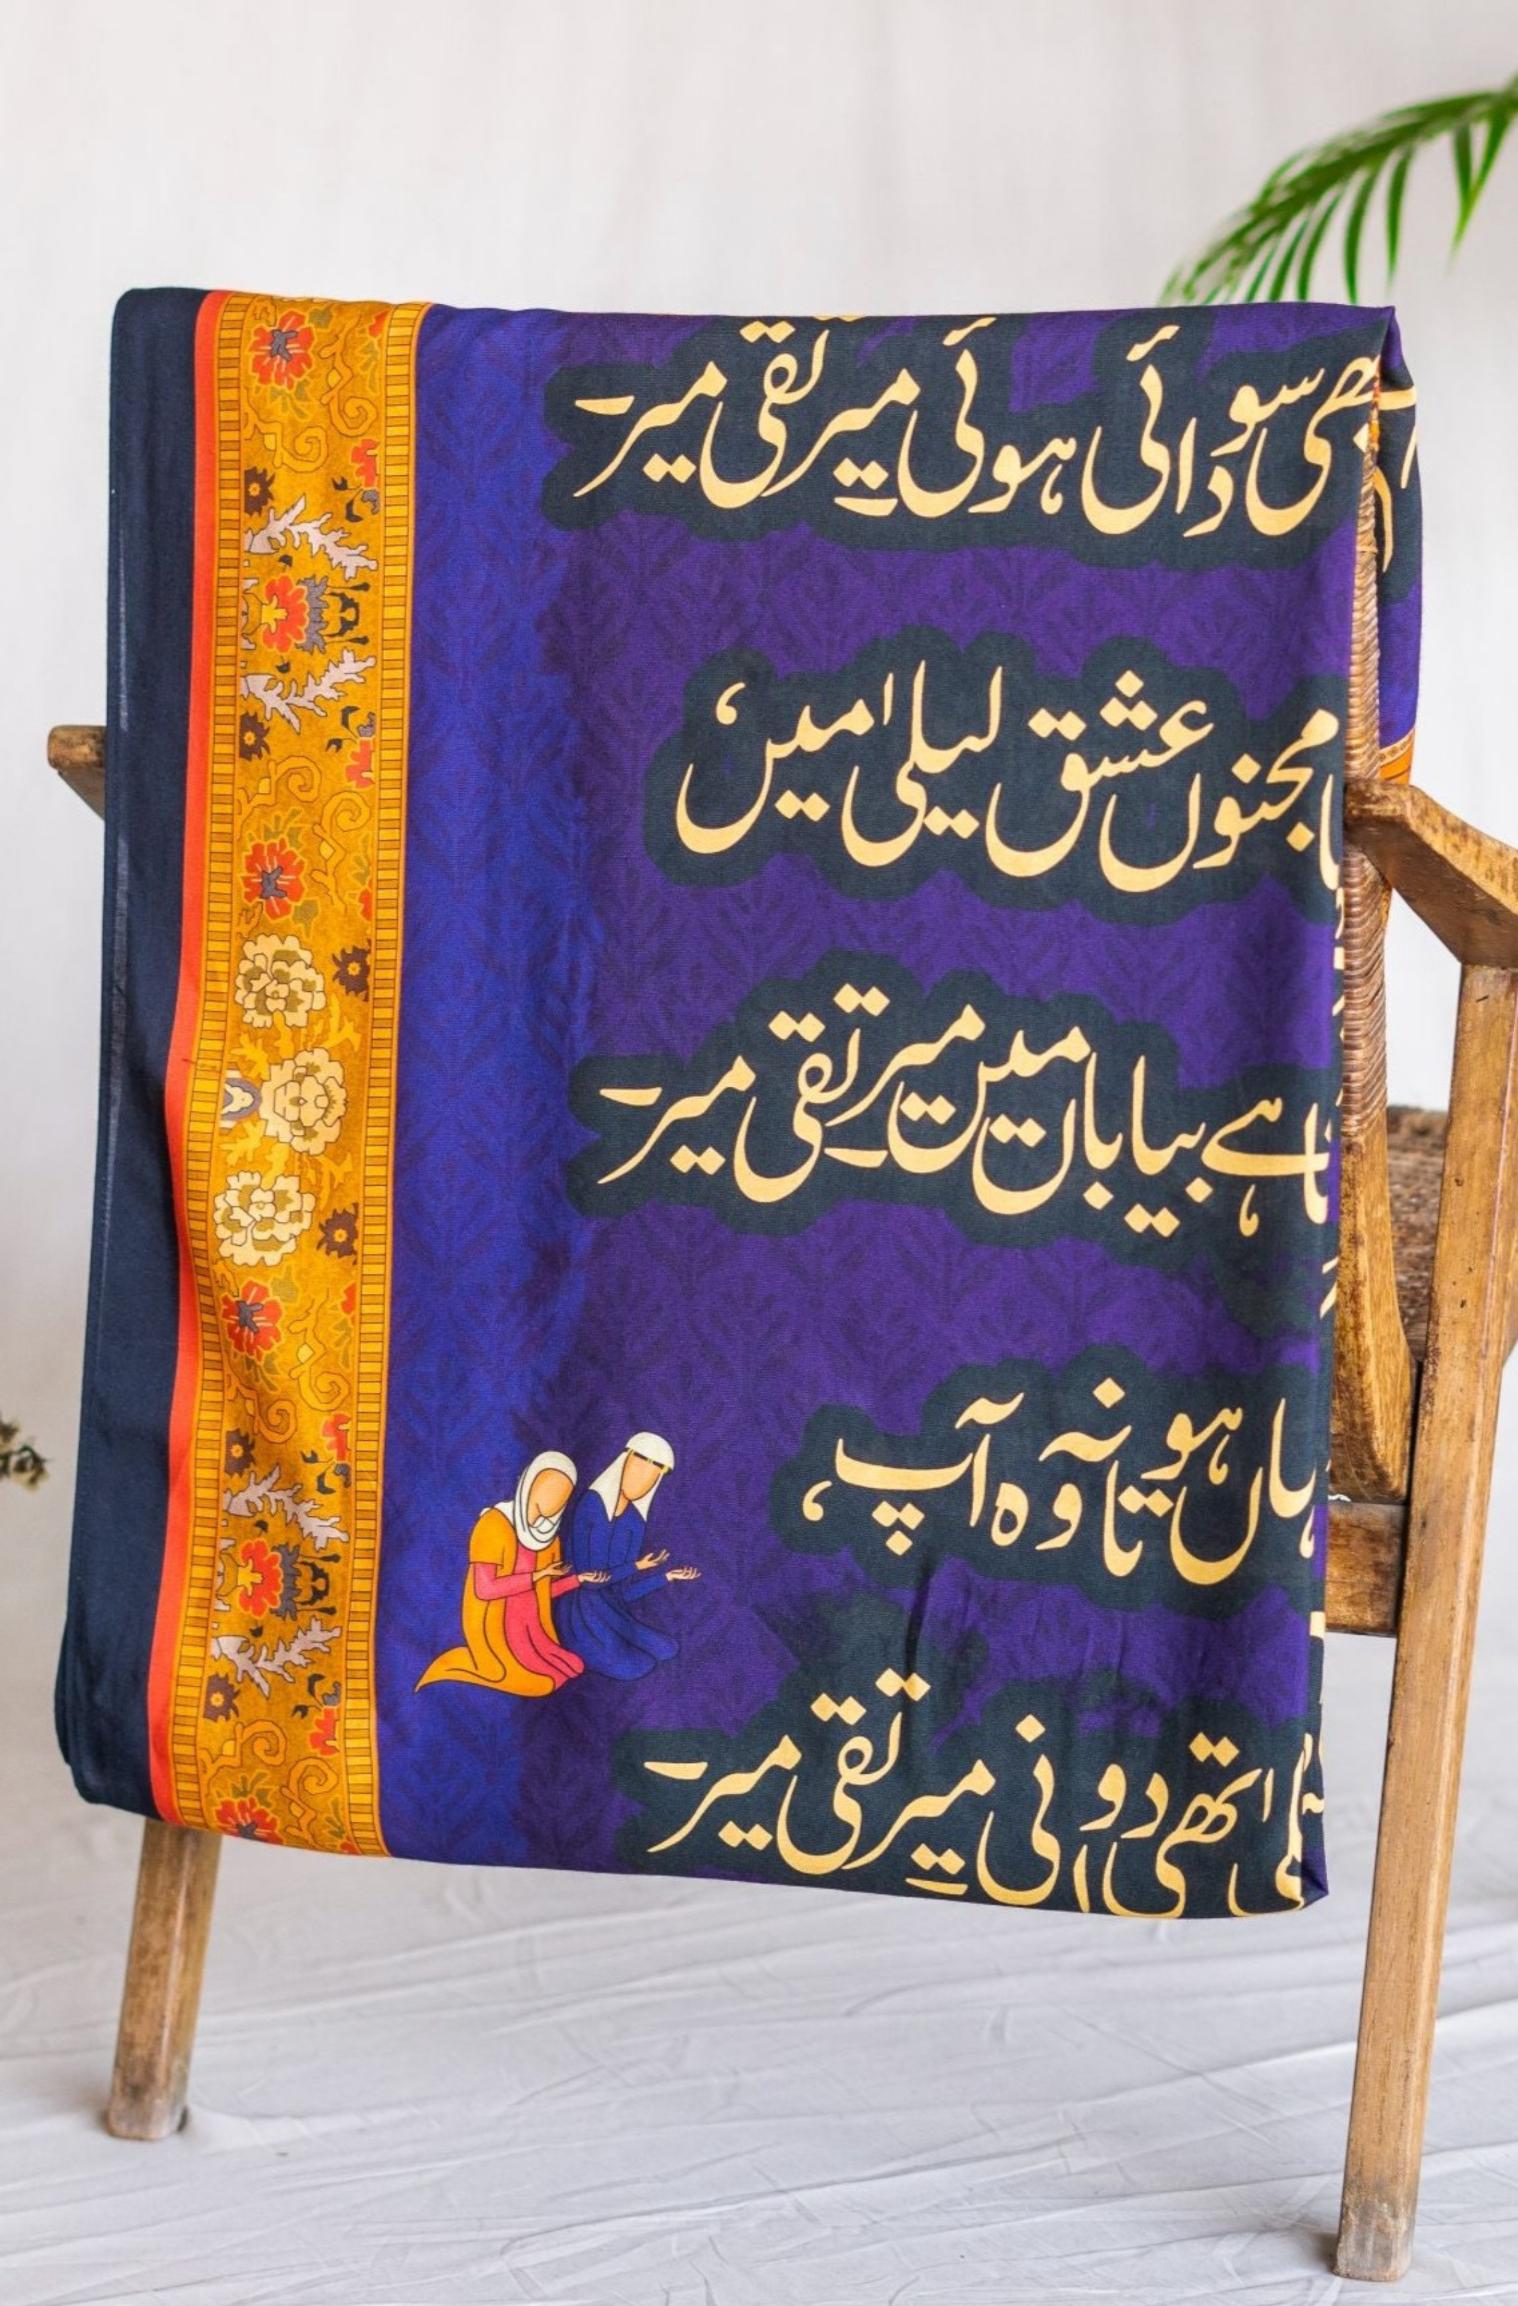 بھی سودائی ہوئی میر تقی میر۔
مجنوں عشق لیلیٰ میں،
ہے بیاباں میں میر تقی میر۔
ہو تا نہ وہ آپ،
اتھی دو انی میر تقی میر۔